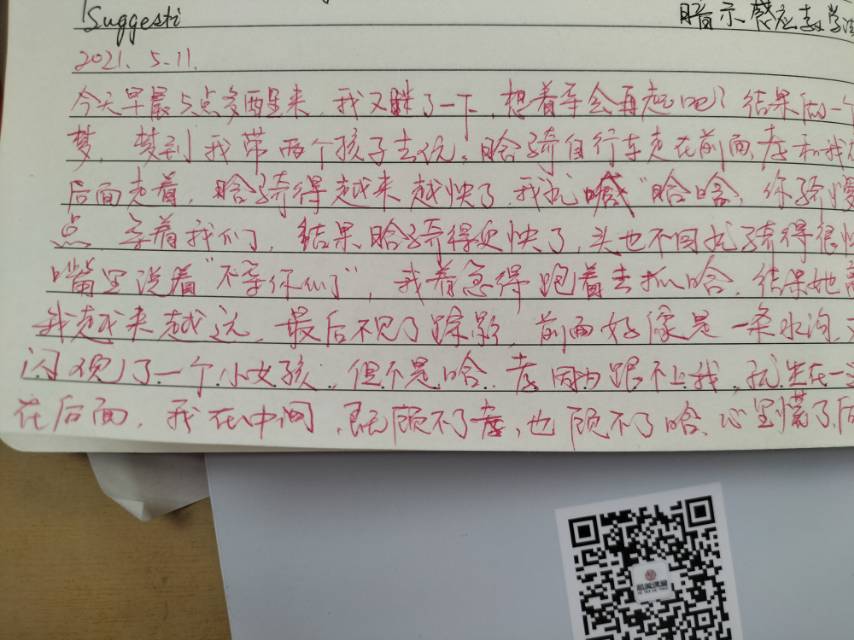 Suggesti
暗示感应教学法
2021. 5.11.
今天早晨5点多醒来,我又睡了一下,想着等会再起吧?结果做一个
梦,梦到我带两个孩子去玩,晗骑自行车走在前面,孝和我在
后面走着,晗骑得越来越快了,我就喊“晗晗,你骑慢
点 等着我们了,结果晗骑得更快了,头也不回就骑得很快
嘴里说着“不等你们了”,我着急得跑着去抓晗,结果她离
我越来越远,最后不见了踪影,前面好像是一条水沟,又
闪现了一个小女孩,但不是晗,孝因为跟不上我,就坐在一边
在后面,我在中间,既顾不了孝,也顾不了晗,心里慌了,后